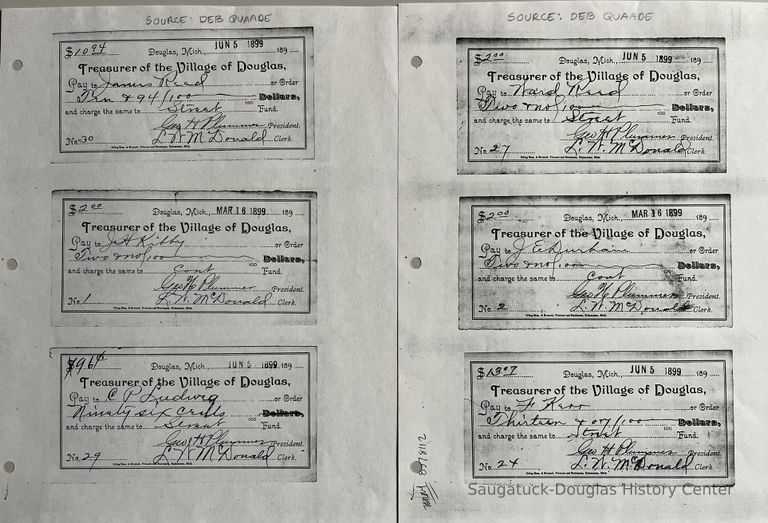 SOURCE: DEB QUAADE
$10 94 Douglas, Mich., JUN 5 1899 189
Treasurer of the Village of Douglas,
Pay to James Reed or Order
Ten & 94/100 Dollars,
and charge the same to Street Fund.
Geo H Plummer President.
No. 30 L. W. McDonald Clerk.
$2.00 Douglas, Mich., MAR 16 1899 189
Treasurer of the Village of Douglas,
Pay to J H Kibby or Order
Two no/100 Dollars,
and charge the same to Cont Fund.
Geo H Plummer President.
No. 1 L. W. McDonald Clerk.
$96¢ Douglas, Mich., JUN 5 1899 189
Treasurer of the Village of Douglas,
Pay to C P Ludwig or Order
Ninety six cents Dollars,
and charge the same to Street Fund.
Geo H Plummer President.
No. 29 L W McDonald Clerk.
SOURCE: DEB QUAADE
$2.00 Douglas, Mich., JUN 5 1899 189
Treasurer of the Village of Douglas,
Pay to Ward Reed or Order
Two & no/100 Dollars,
and charge the same to Street Fund.
Geo H Plummer President.
No. 27 L. W. McDonald Clerk.
$2.00 Douglas, Mich., MAR 16 1899 189
Treasurer of the Village of Douglas,
Pay to J E Durham or Order
Two & no/100 Dollars,
and charge the same to Cont Fund.
Geo H Plummer President.
No. 2 L. W. McDonald Clerk.
$13.07 Douglas, Mich., JUN 5 1899 189
Treasurer of the Village of Douglas,
Pay to F Kerr or Order
Thirteen & 07/100 Dollars,
and charge the same to Street Fund.
Geo H Plummer President.
No. 24 L. W. McDonald Clerk.
Saugatuck-Douglas History Center